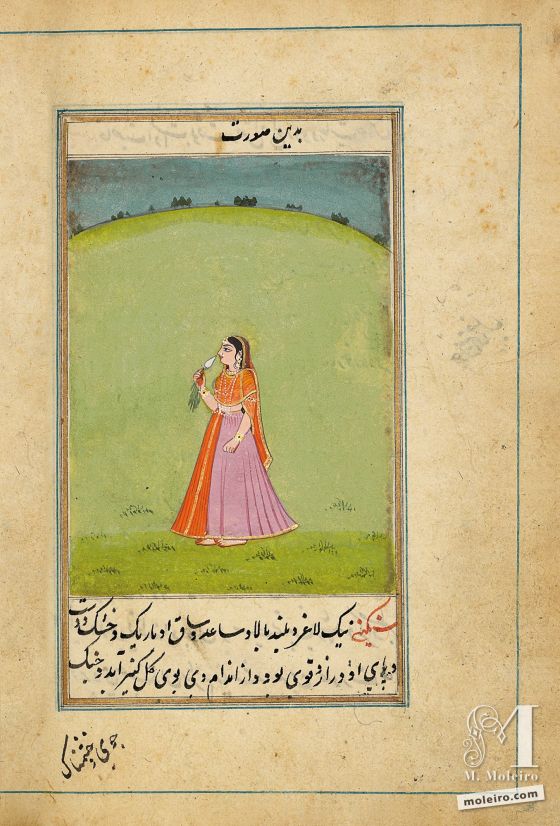 بدین صورت
سنکهنے نیک لاغر و بلند بالا و ساعد و ساق او باریک و خشک و دست
و پای او دراز و قوی بود و از اندام وی بوی کل کنیر آید و
M
M. Moleiro
moleiro.com